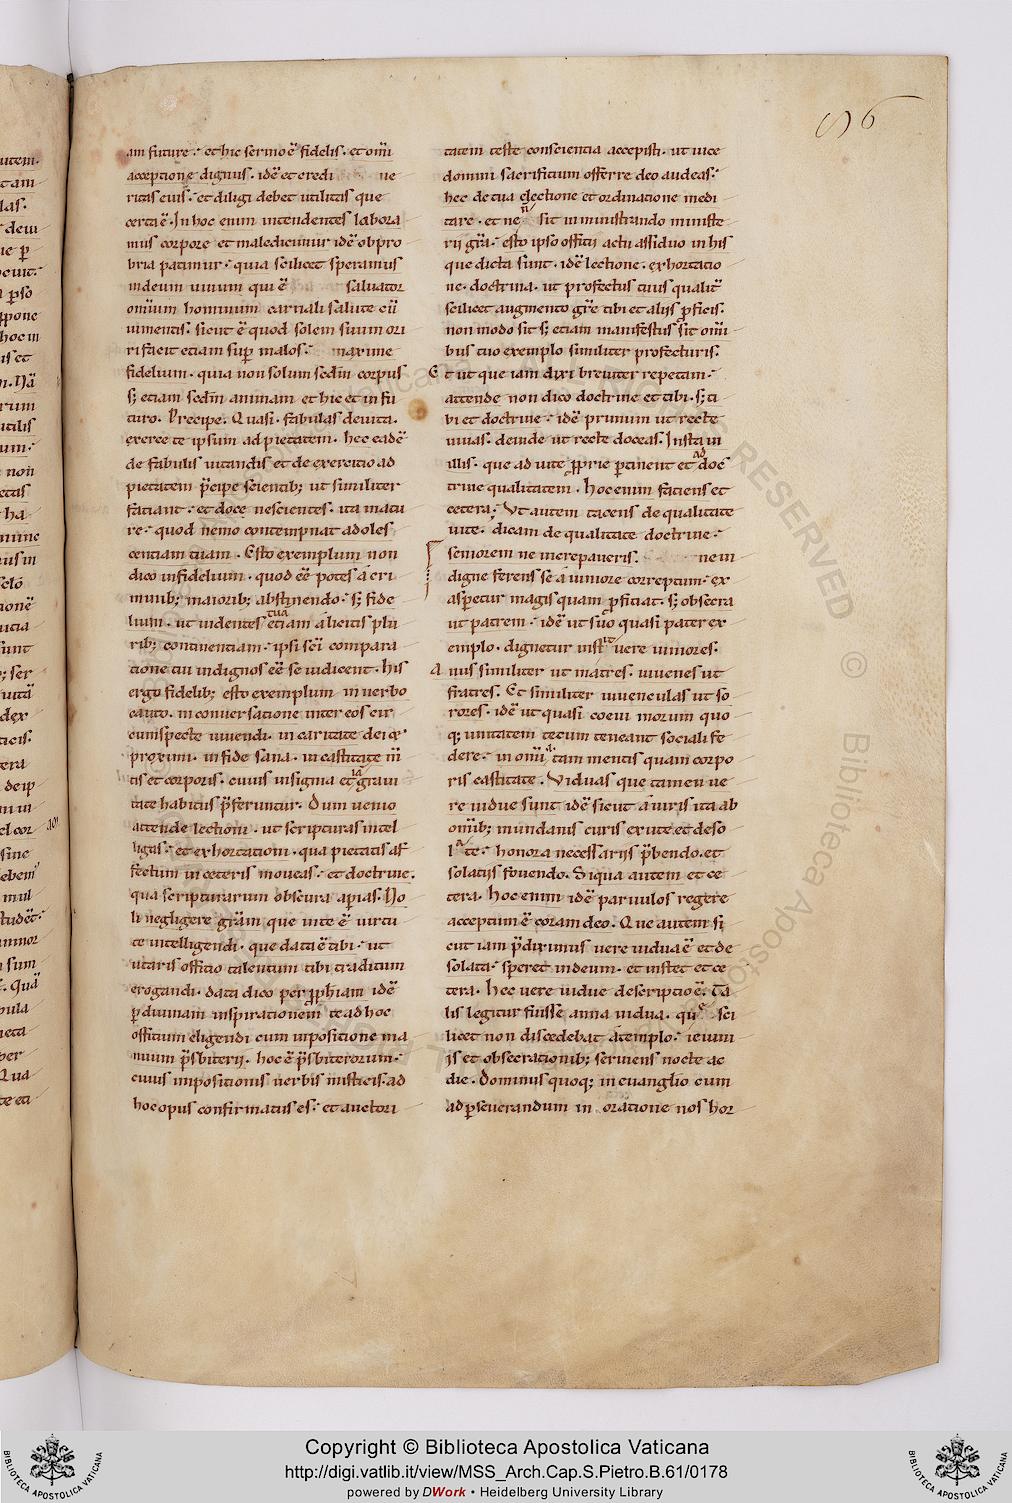 am future· et hic sermo ē fidelis· et om̄i
acceptione dignus· idē et credi ue
ritas eius· et diligi debet utilitas que
certa ē· In hoc enim intendentes labora
mus corpore et maledicimur idē obpro
bria patimur· quia scilicet speramus
in deum uiuum qui ē saluator
omnium hominum carnali salute
uimentis· sicut ē quod solem suum ori
ri facit etiam sup malos· maxime
fidelium· quia non solum scdm corpus
s; etiam scdm animam et hic et in fu
turo· Precipe· Quasi· fabulas deuita·
exerce te ipsum ad pietatem· hec eadē
de fabulis uitandis et de exercitio ad
pietatem p̄cipe scientib; ut similiter
faciant· et doce nescientes· ita matu
re· quod nemo contempnat adoles
centiam tuam· Esto exemplum non
dico infidelium· quod eē potes a cri
minib; maiorib; abstinendo· s; fide
lium· ut uidentes tua etiam a licitis plu
rib; continentiam· ipsi sei compara
tione tui indignos eē se iudicent· his
ergo fidelib; esto exemplum in uerbo
cauto· in conuersatione inter eos cir
cumspecte uiuendi· in caritate dei &
proximi· in fide sana· in castitate m̄
tis et corporis· cuius insignia et ia graui
tate habitus p̄feruntur· Dum uenio
attende lectioni· ut scripturas intel
ligas· et exhortationi· qua pietatis af
fectum in ceteris moueas· et doctrine·
qua scripturarum obscura apias· No
li negligere grām que in te ē uirtu
te intelligendi· que data ē tibi· ut
utaris officio talentum tibi traditum
erogandi· data dico per pphiam idē
p diuinam inspirationem te ad hoc
officium eligendi cum inpositione ma
nuum p̄sbiterij· hoc ē p̄sbiterorum·
cuius impositionis uerbis misticis ad
hoc opus confirmatus es· et auctori
tatem teste conscientia accepisti· ut uice
domini sacrificium offerre deo audeas·
hec de tua electione et ordinatione medi
tare· et ne n̄ sit in ministrando ministe
rii grā· esto ipso officii actu assiduo in his
que dicta sunt· idē lectione· exhortatio
ne· doctrina· ut profectus tuus
scilicet augmento grē tibi et aliis p̄ficis·
non modo sit s; etiam manifestus sit om̄i
bus tuo exemplo similiter profecturis·
Et ut que iam dixi breuiter repetam·
attende non dico doctrine et tibi· s; ti
bi et doctrine· idē primum ut recte
uiuas· deinde ut recte doceas· Insta in
illis· que ad uite pprie ptinent et ad doc
trine qualitatem· Hoc enim faciens et
cetera; Vt autem tacens de qualitate
uite· dicam de qualitate doctrine·
seniorem ne increpaueris· ne in
digne ferens se a iuniore correptum· ex
asperetur magis quam pficiat· s; obsecra
ut patrem· idē ut suo quasi pater ex
emplo· dignetur inst uere iuniores·
Anus similiter ut matres· iuuenes ut
fratres· Et similiter iuuenculas ut so
rores· idē ut quasi coeui morum quo
q; unitatem tecum teneant sociali fe
dere· in om̄i tam mentis quam corpo
ris castitate· Viduas que tamen ue
re uidue sunt idē sicut a uiris ita ab
omib; mundanis curis exute et deso
late· honora necessariis p̄bendo· et
solatiis fouendo· Siqua autem et ce
tera· hoc enim idē paruulos regere
acceptum ē coram deo· Que autem si
cut iam p̄diximus uere uidua ē et de
solata· speret in deum· et instet et ce
tera· Hec uere uidue descriptio ē· Ta
lis legitur fuisse anna uidua· que sci
licet non discedebat a templo· ieiuni
is et obsecrationib; seruiens nocte ac
die· Dominus quoq; in euanglio cum
ad pseuerandum in oratione nos hor
Copyright © Biblioteca Apostolica Vaticana
http://digi.vatlib.it/view/MSS_Arch.Cap.S.Pietro.B.61/0178
powered by DWork • Heidelberg University Library
BIBLIOTECA APOSTOLICA VATICANA
BIBLIOTECA APOSTOLICA VATICANA